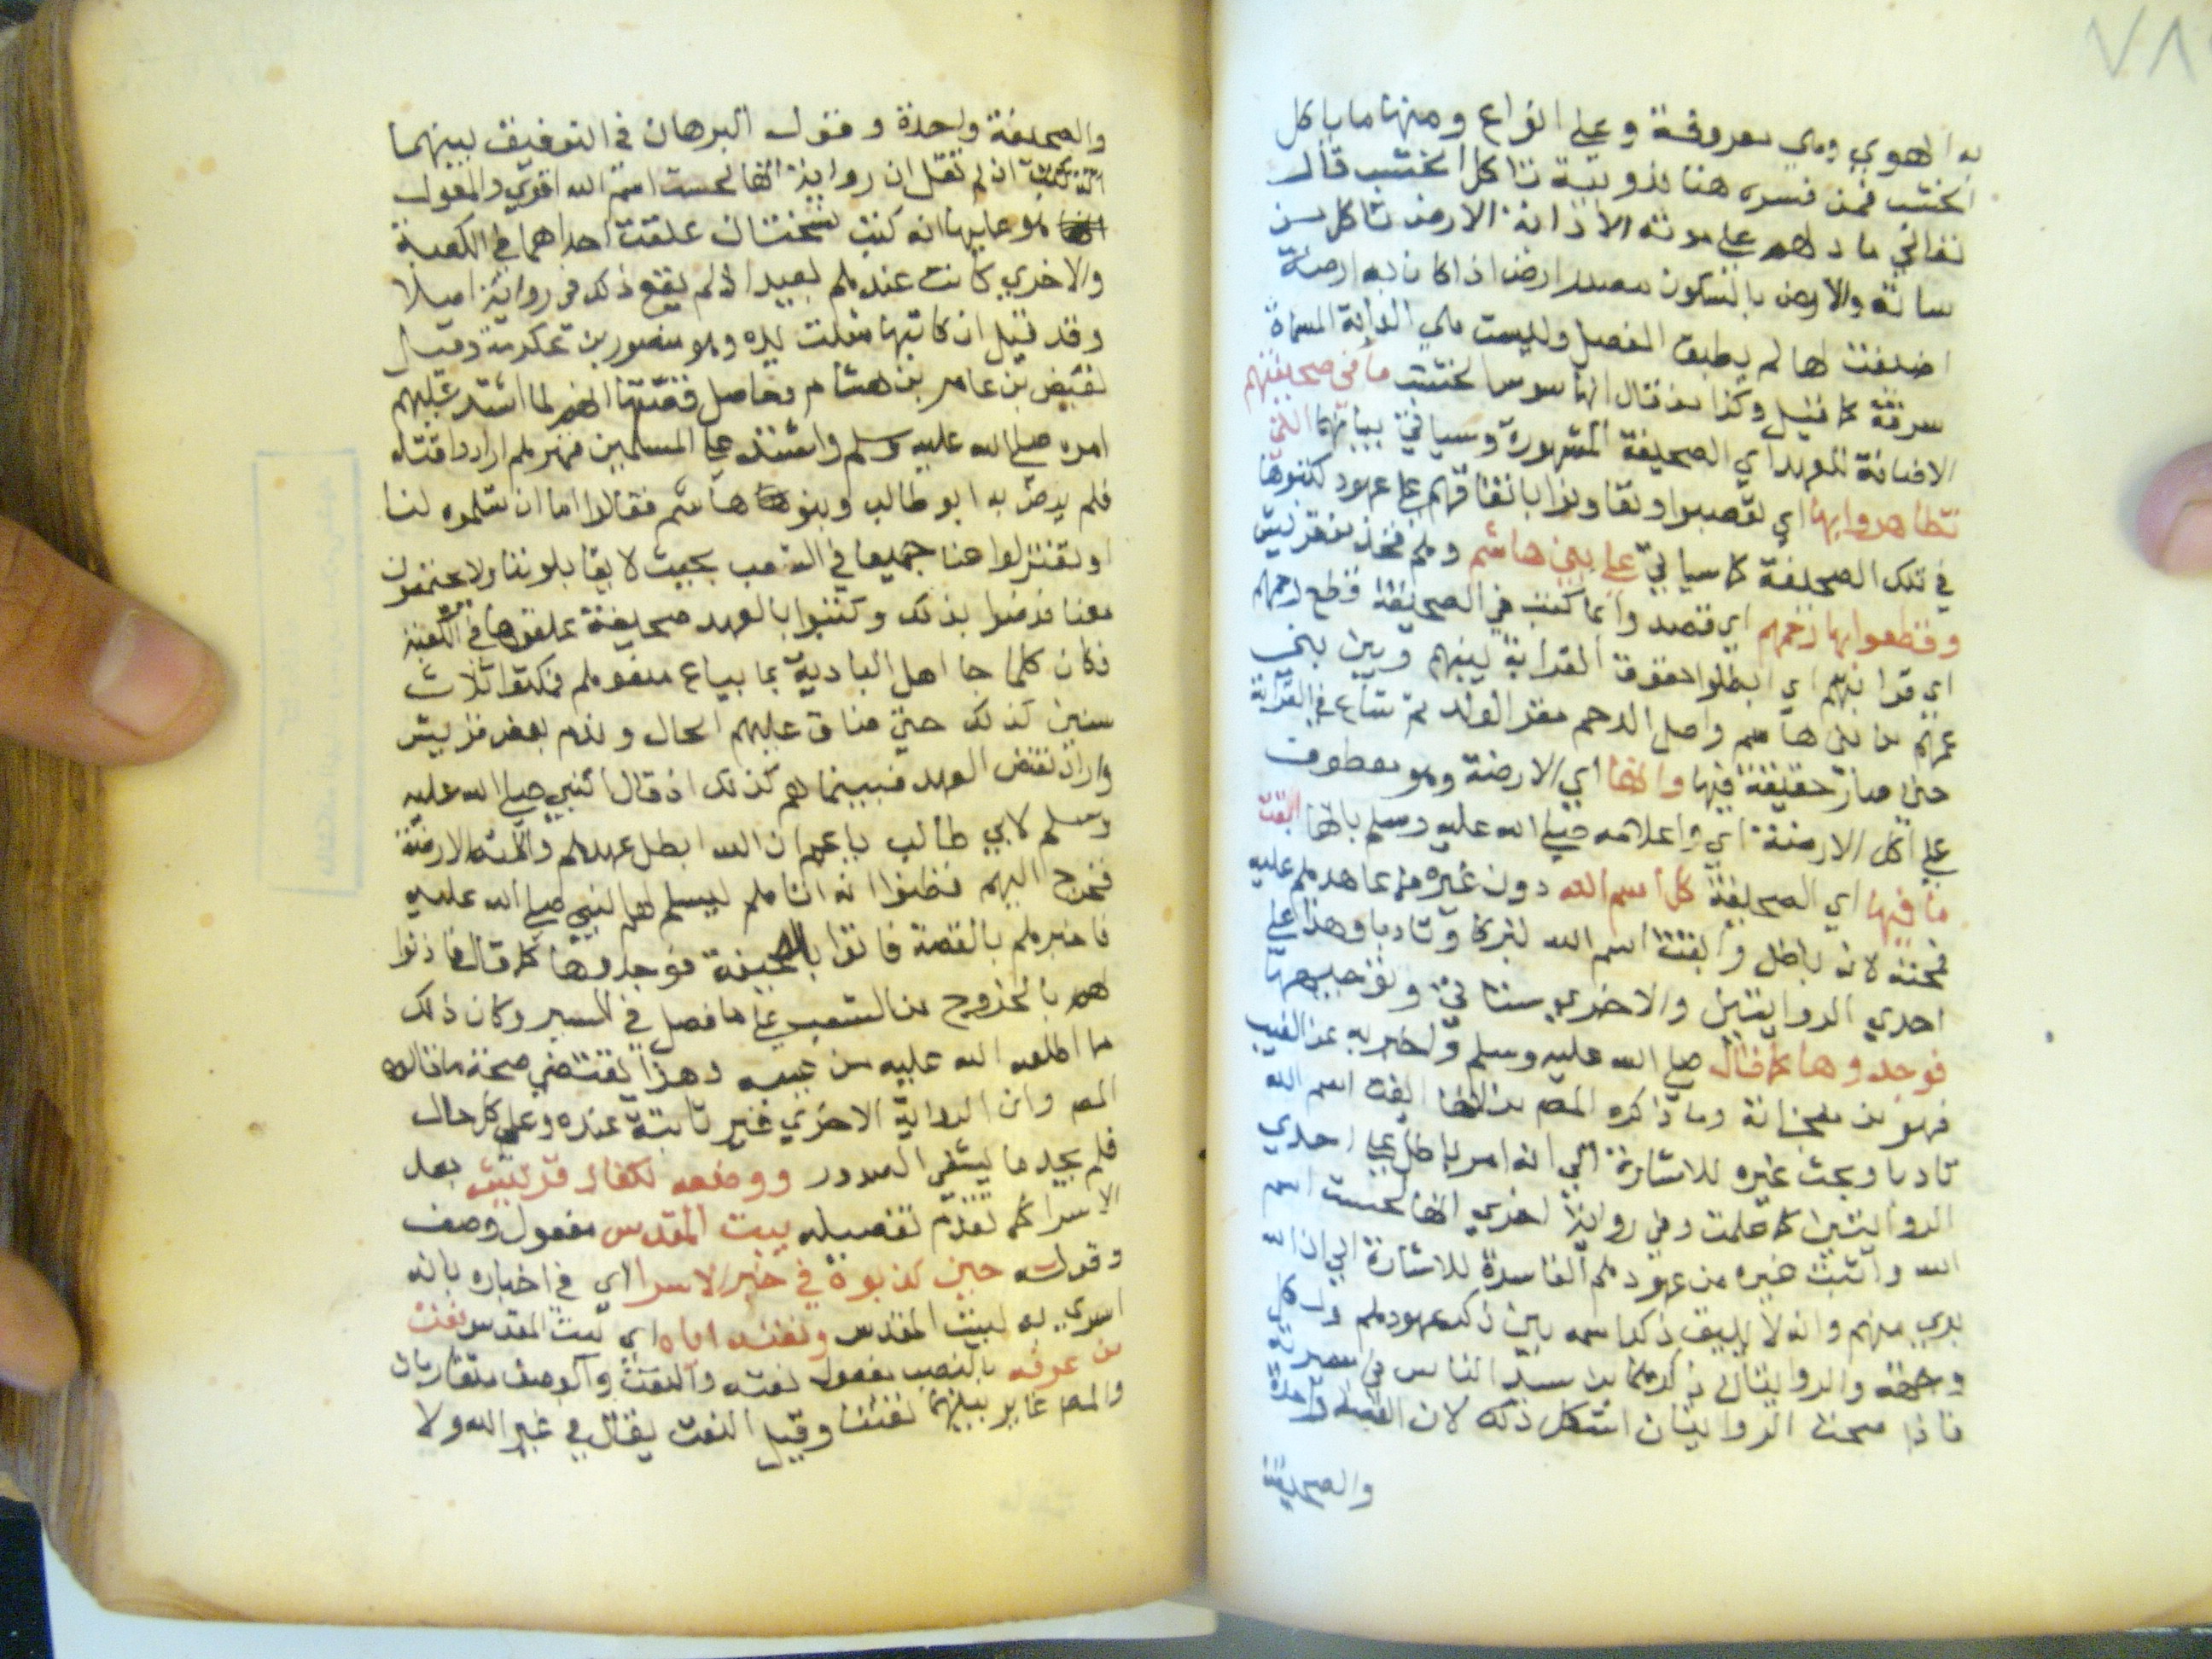 به الهوي وهي معروفة وعلي انواع ومنها ما ياكل
الخشب فمن فسره هنا بذويبة تاكل الخشب قال
تعالي ما دلهم علي موته الا دابة الارض تاكل من
ساته والارض بالسكون مصدر ارض اذا كان به ارضة
اضيفت لها لم يطبق المفصل وليست هي الدابة المسماة
سرفة كما قيل وكذا من قال انها سوس الخشب ما في صحيفتهم
الاضافة للعهد اي الصحيفة المشهورة وسياتي بيانها التي
تظاهروا بها اي تعصبوا وتعاونوا باتفاقهم علي عهود كتبوها
في تلك الصحيفة كما سياتي علي بني هاشم وهم فخذ من قريش
وقطعوا بها رحمهم اي قصدوا بما كتب في الصحيفة قطع رحمهم
اي قرابتهم اي ابطلوا حقوق القرابة بينهم وبين بني
عمهم من بني هاشم واصل الرحم مقر الولد ثم شاع في القرابة
حتي صار حقيقة فيها وانها اي الارضة وهو معطوف
علي اكل الارضة اي واعلامه صلي الله عليه وسلم بانها ابقت
ما فيها اي الصحيفة كل اسم الله دون غيره مما عاهدهم عليه
فمحته لانه باطل وابقت اسم الله تبركا وتادبا وهذا علي
احدي الروايتين والاخري ستاتي وتوجيهها
فوجدوها كما قال صلي الله عليه وسلم واخبر به عن الغيب
فهو من معجزاته وما ذكره المص من انها ابقت اسم الله
تادبا ومحت غيره للاشارة الي انه امر باطل علي احدي
الروايتين كما علمت وفي رواية اخري انها لحست اسم
الله واثبت غيره من عهودهم الفاسدة للاشارة الي ان الله
بري منهم وانه لا يليق ذكر اسمه بين ذكر عهودهم ولكل
وجهة والروايتان ذكرهما ابن سيد الناس في سيرته
فاذا صحت الروايتان اشكل ذلك لان القصة واحدة
والصحيفة
والصحيفة واحدة وقول البرهان في التوفيق بينهما
ان لم تقل ان رواية انها لحست اسم الله اقوي والمعول
هو عليها انه كتب نسختان علقت احداهما في الكعبة
والاخري كانت عندهم بعيد اذ لم يقع ذكر في رواية اصلا
وقد قيل ان كاتبها شلت يده وهو منصور بن عكرمة وقيل
بغيض بن عامر بن هشام وحاصل قصتها انهم لما اشتد عليهم
امره صلي الله عليه وسلم واشتد علي المسلمين قهرهم ارادوا قتله
فلم يرض به ابو طالب وبنو هاشم فقالوا اما ان تسلموه لنا
او تعتزلوا عنا جميعا في الشعب بحيث لا يقابلوننا ولا يجتمعون
معنا فرضوا بذلك وكتبوا بالعهد صحيفة علقوها في الكعبة
فكان كلما جا اهل البادية بما يباع منعوهم فمكثوا ثلاث
سنين كذلك حتي ضاق عليهم الحال وندم بعض قريش
واراد نقض العهد فبينما هم كذلك اذ قال النبي صلي الله عليه
وسلم لابي طالب يا عم ان الله ابطل عهدهم واكلته الارضة
فخرج اليهم فظنوا انه اتاهم ليسلم لهم النبي صلي الله عليه
فاخبرهم بالقصة فاتوا بالصحيفة فوجدوها كما قال فاذنوا
لهم بالخروج من الشعب علي ما فصل في السير وكان ذلك
مما اطلعه الله عليه من غيبه وهذا يقتضي صحة ما قاله
المص وان الرواية الاخري غير ثابتة عنده وعلي كل حال
فلم يجد ما يشفي الصدور ووصفه لكفار قريش بعد
الاسرا كما تقدم تفصيله بيت المقدس مفعول وصف
وقوله حين كذبوه في خبر الاسرا اي في اخباره بانه
اسري به لبيت المقدس ونعته اياه اي بيت المقدس نعت
من عرفه بالنصب مفعول نعته والنعت والوصف متقاربان
والمص غاير بينهما تفننا وقيل النعت يقال في غير الله ولا